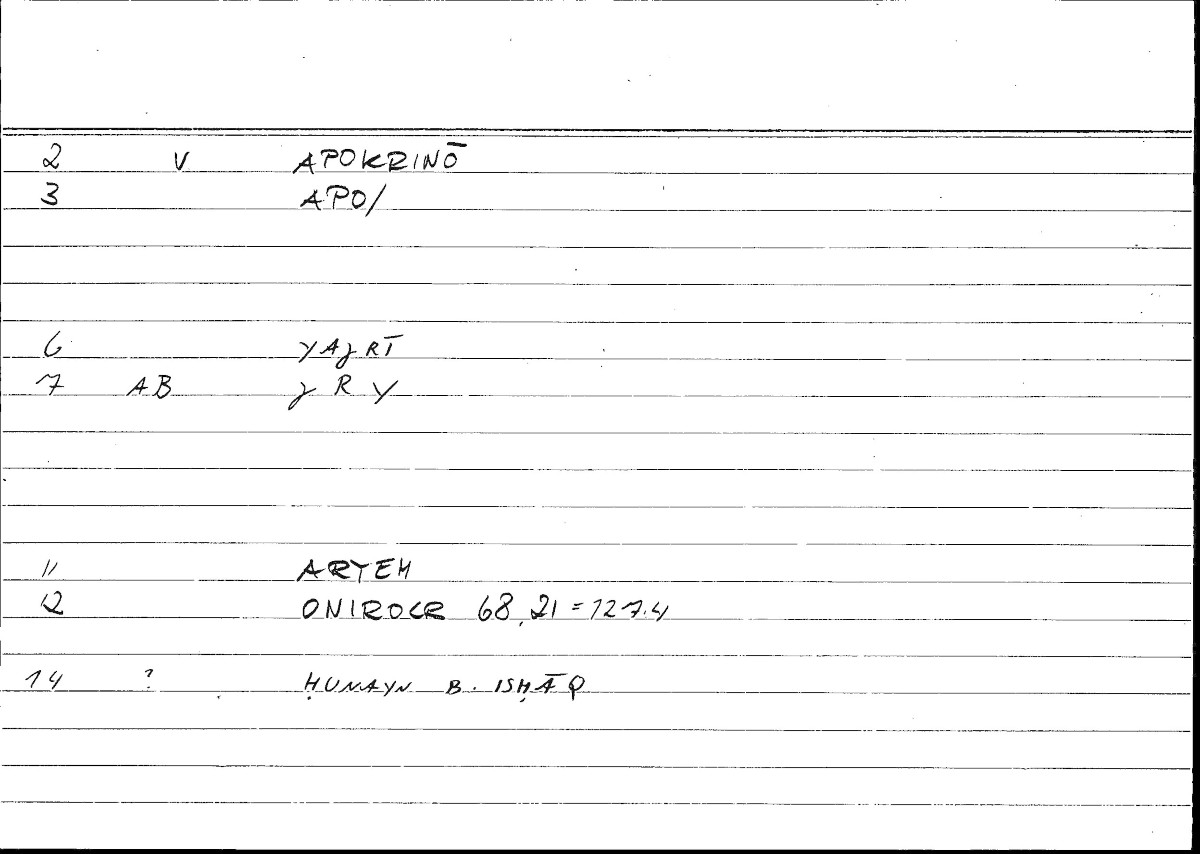 2 V APOKRINŌ
3 APO/
6 YAJRĪ
7 AB J R Y
11 ARTEM
12 ONIROCR 68.21 = 127.4
14 ? ḤUNAYN B. ISḤĀQ